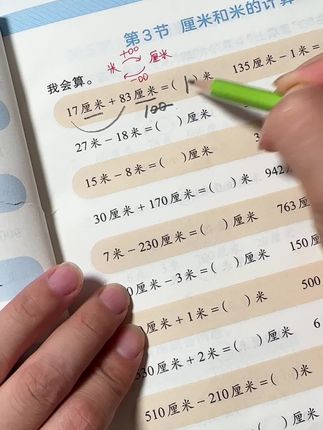 第3节 厘米和米的计算
+00
米 厘米
-00
我会算。
17厘米+83厘米=(1)米 135厘米-1米=
100
27米-18米=( )厘米
15米-8米=( )厘米
30厘米+170厘米=( )米 942
7米-230厘米=( )厘米 763厘
厘米-3米=( )厘米 150厘
厘米+1米=( )米 500
330厘米+2米=( )厘米
510厘米-210厘米=( )米